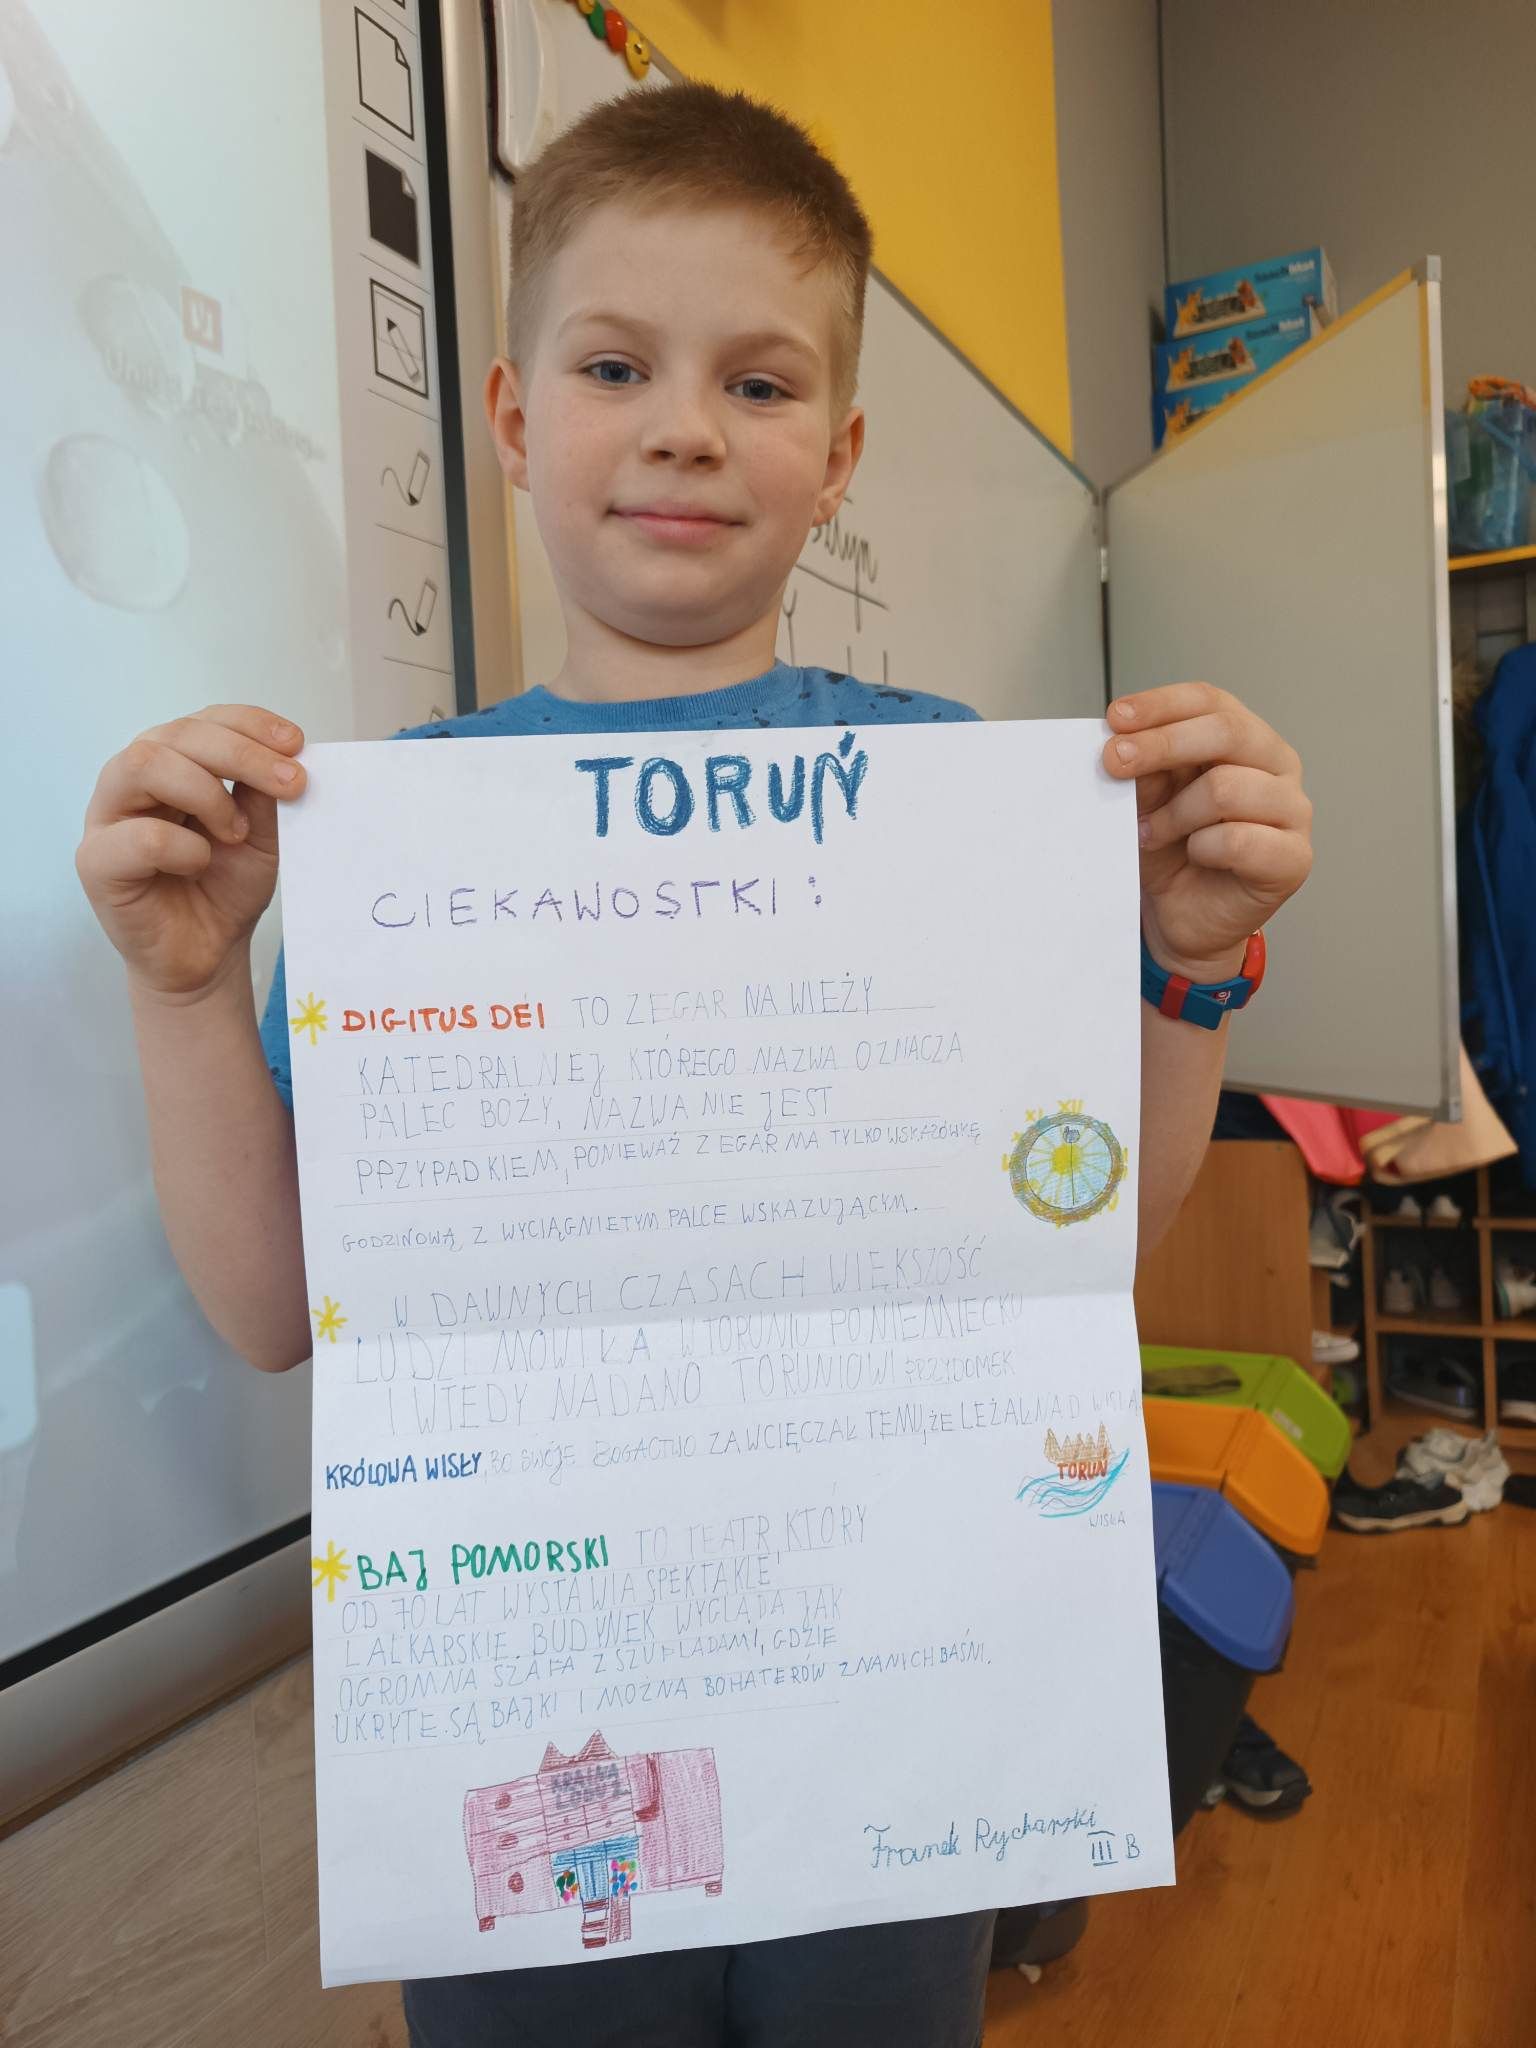 TORUŃ
CIEKAWOSTKI:
DIGITUS DEI TO ZEGAR NA WIEŻY
KATEDRALNEJ KTÓREGO NAZWA OZNACZA
PALEC BOŻY, NAZWA NIE JEST
PRZYPADKIEM, PONIEWAŻ ZEGAR MA TYLKO WSKAZÓWKĘ
GODZINOWĄ, Z WYCIĄGNIETYM PALCE WSKAZUJĄCYM.
XII
W DAWNYCH CZASACH WIĘKSZOŚĆ
LUDZI MÓWIŁA W TORUNIU PO NIEMIECKU
I WTEDY NADANO TORUNIOWI PRZYDOMEK
KRÓLOWA WISŁY, BO SWOJE BOGACTWO ZAWCIĘCZAŁ TEMU, ŻE LEŻAŁ NAD WISŁĄ.
TORUŃ
WISŁA
BAJ POMORSKI TO TEATR, KTÓRY
OD 70 LAT WYSTAWIA SPEKTAKLE
LALKARSKIE. BUDYNEK WYGLĄDA JAK
OGROMNA SZAFA Z SZUFLADAMI, GDZIE
UKRYTE SĄ BAJKI I MOŻNA BOHATERÓW ZNANICH BAŚNI.
KRAINA
Franek Rycharski
III B